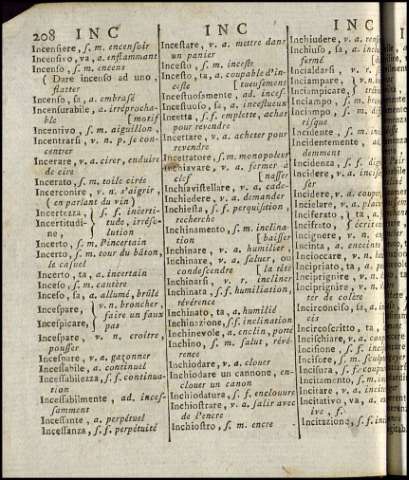 208 INC INC INC
Incensiere, s. m. encensoir
Incensivo, va, a. enflammant
Incenso, s. m. encens
(Dare incenso ad uno,
flatter
Incenso, sa, a. embrasé
Incensurabile, a. irréprocha-
ble [motif
Incentivo, s. m. aiguillon,
Incentrarsi, v. n. p. se con-
centrer
Incerare, v. a. cirer, enduire
de cire
Incerato, s. m. toile cirée
Incerconire, v. n. s'aigrir,
(en parlant du vin)
Incertezza, s. f. incerti-
Incertitudi- tude, irréso-
ne, lution
Incerto, s. m. l'incertain
Incerto, s. m. tour du bâton,
la casuel
Incerto, ta, a. incertain
Inceso, s. m. cautère
Inceso, sa, a. allumé, brûlé
Incespare, v. n. broncher,
faire un faux
Incespicare, pas
Incespare, v. n. croître,
pousser
Incespare, v. a. gazonner
Incessabile, a. continuel
Incessabilezza, s. f. continua-
tion
Incessabilmente, ad. inces-
samment
Incessante, a. perpétuel
Incessanza, s. f. perpétuité
Incestare, v. a. mettre dans
un panier
Incesto, s. m. inceste
Incesto, ta, a. coupable d'in-
ceste [tueusement
Incestuosamente, ad. inces-
Incestuoso, sa, a. incestueux
Incetta, s. f. emplette, achat
pour revendre
Incettare, v. a. acheter pour
revendre
Incettatore, s. m. monopoleur
Inchiavare, v. a. fermer à
clef [nasser
Inchiavistellare, v. a. cade-
Inchiedere, v. a. demander
Inchiesta, s. f. perquisition
recherche
Inchinamento, s. m. inclina-
tion [baisser
Inchinare, v. a. humilier,
Inchinare, v. a. saluer, ou
condescendre [la tête
Inchinarsi, v. r. incliner
Inchinata, s. f. humiliation,
révérence
Inchinato, ta, a. humilié
Inchinazione, s. f. inclination
Inchinevole, a. enclin, porté
Inchino, s. m. salut, révé-
rence
Inchiodare, v. a. clouer
Inchiodare un cannone, en-
clouer un canon
Inchiodatura, s. f. enclouure
Inchiostrare, v. a. salir avec
de l'encre
Inchiostro, s. m. encre
Inchiudere, v. a.
Inchiuso, sa, a.
fermé
Incialdarsi, v. r.
Inciampare, v. n.
Inciampicare,
Inciampo, s. m.
risque
Incidente, s. m.
Incidentemente, a
demment
Incidenza, s. f.
Incidere, v. a.
ser
Incidere, v. a. coupe
Incielare, v. a. plac
Inciferato, ta,
Inciferto,
Incignere, v. n.
Incinta, a. enceinte
Incioccare, v. n.
Incipriato, ta, a.
Inciprignire, v. n.
Inciprignire, v. n.
ter de colère
Incirconciso, sa, a.
cis
Incircoscritto, ta,
Incischiare, v. a. coup
Incisione, s. f.
Incisore, s. m. sculp
Incisura, s. f. coupu
Incitamento, s. m.
Incitare, v. a. inciter
Incitativo, va, a.
ive, f.
Incitazione, s. f. inci